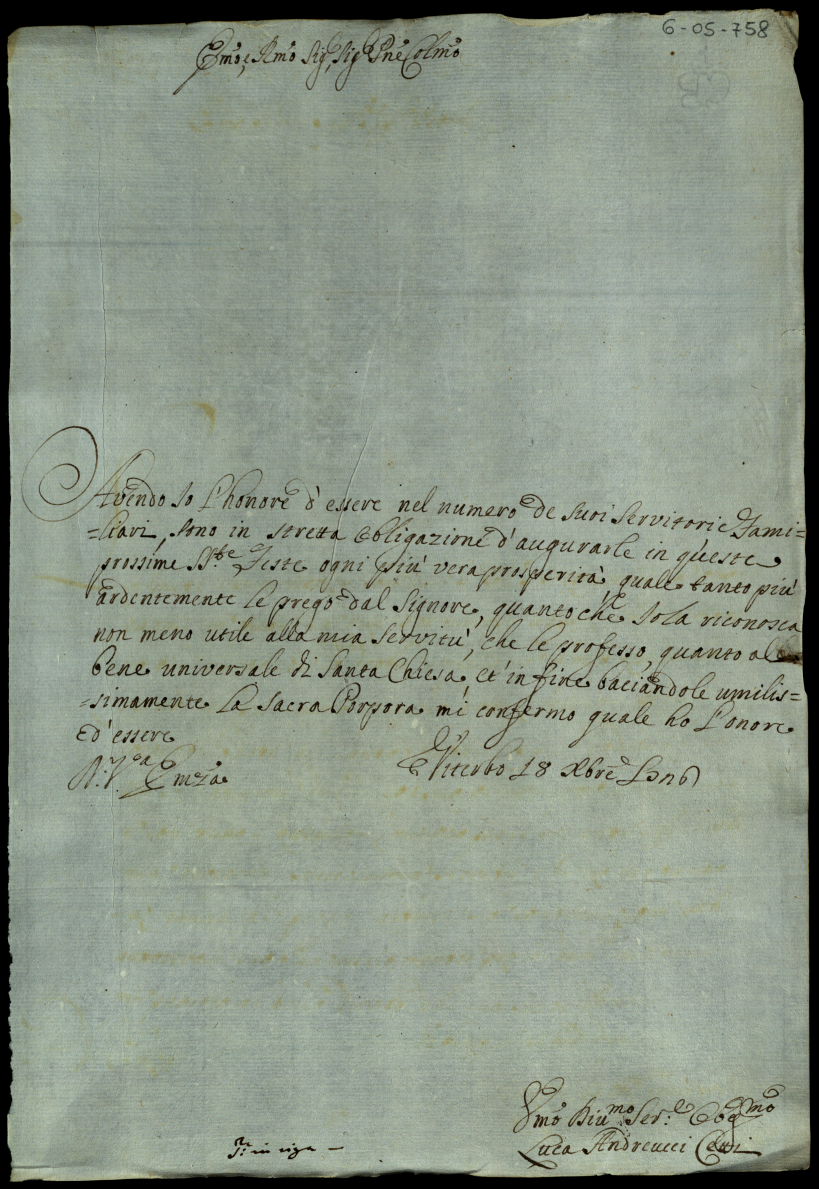 6-05-758
Emo, e Rmo Sig, Sig Pne Colmo
Avendo Io l'honore d'essere nel numero de Suoi Servitori e Fami=
=liari, sono in stretta obligazione d'augurarle in queste
prossime SS.te Feste ogni più vera prosperità quale tanto più
ardentemente le prego dal Signore, quanto che Io la riconosca
non meno utile alla mia servitù, che le professo, quanto al
bene universale di Santa Chiesa et in fine baciandole umilis=
=simamente la Sacra Porpora mi confermo quale ho l'onore
d'essere
Viterbo 18 Xbre
Vra Emza
Umo Diumo Ser.e Obbmo
Luca Andreucci